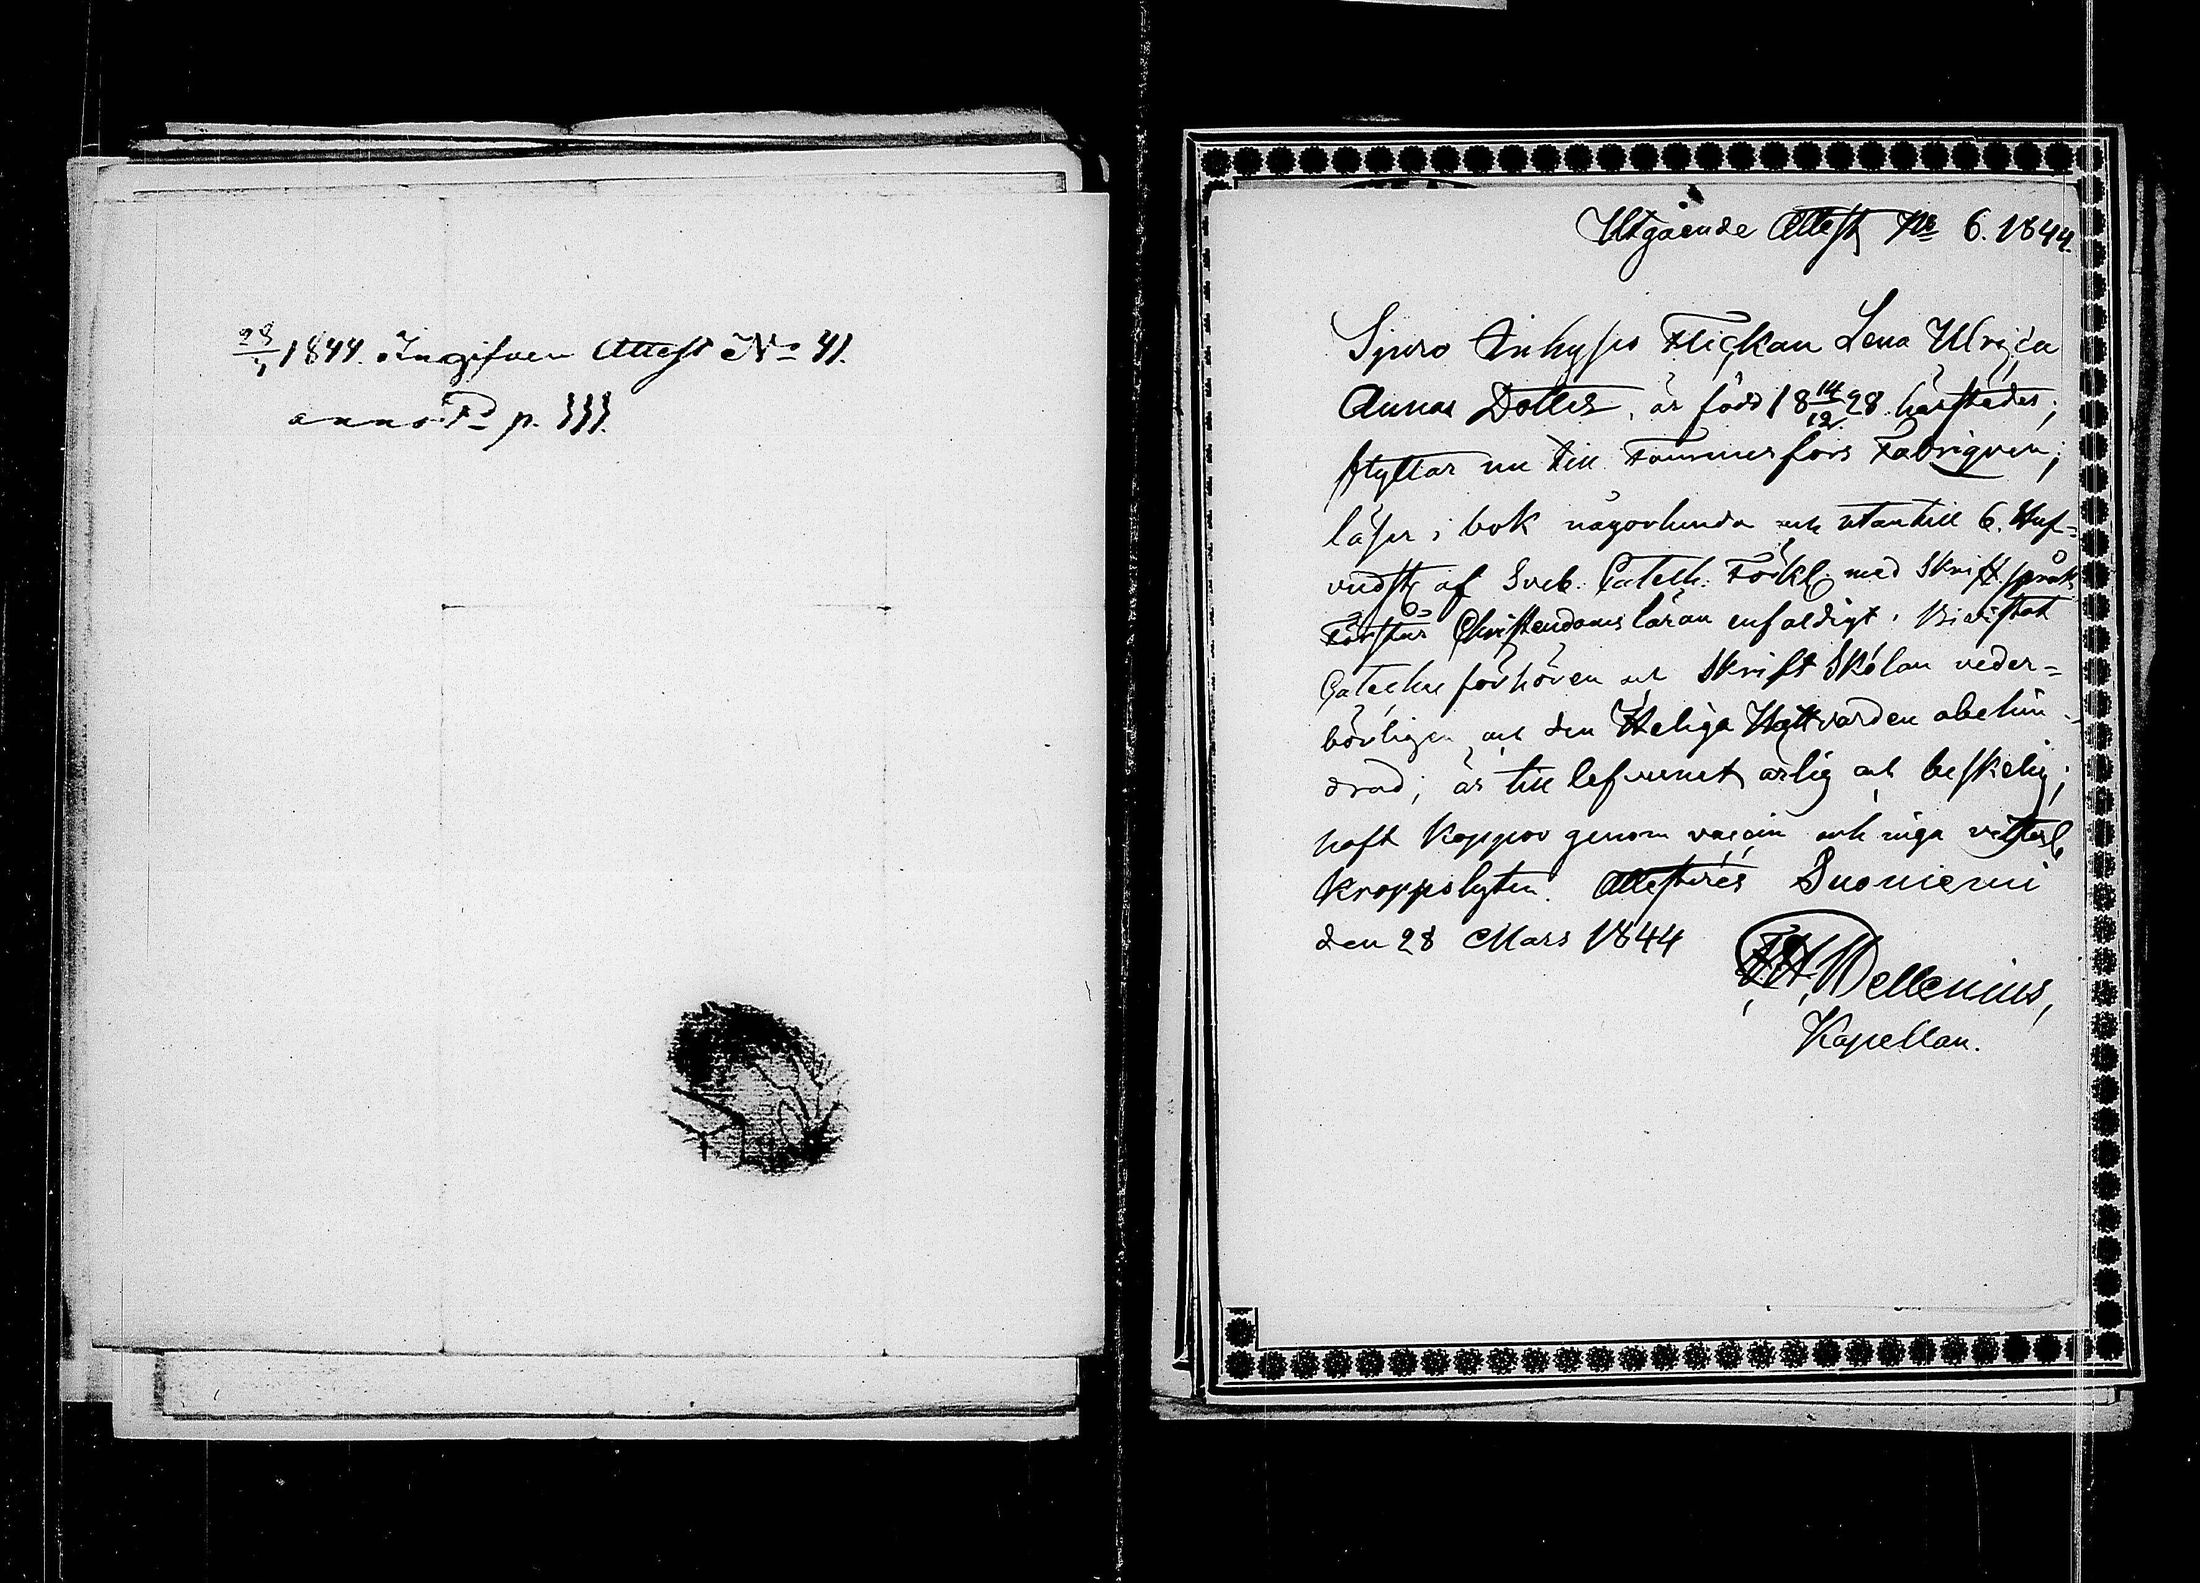 28/3 1844. Ingifven Attest No 41.
anno p.
Utgående Attest No 6. 1844.
Sjuro Inhyses Flickan Lena Ulrica
Annas Dotter, är född 18 14/12 28 härstädes;
flyttar nu till Tammerfors Fabriquen;
läser i bok någorlunda och utantill 6. Huf-
vudst af Sveb. Catech. Förkl med Skriftspråk
Förstår Christendoms läran enfaldigt. Bivistat
Cateche förhören och Skrift Skolan veder-
börligen och den Heliga Nattvarden obehin-
drad; är till lefvernet ärlig och beskelig;
haft Koppor genom vaccin och inga
Kroppslyten. Attesteres Suoniemi
den 28 Mars 1844
Wellenius,
Kapellan.